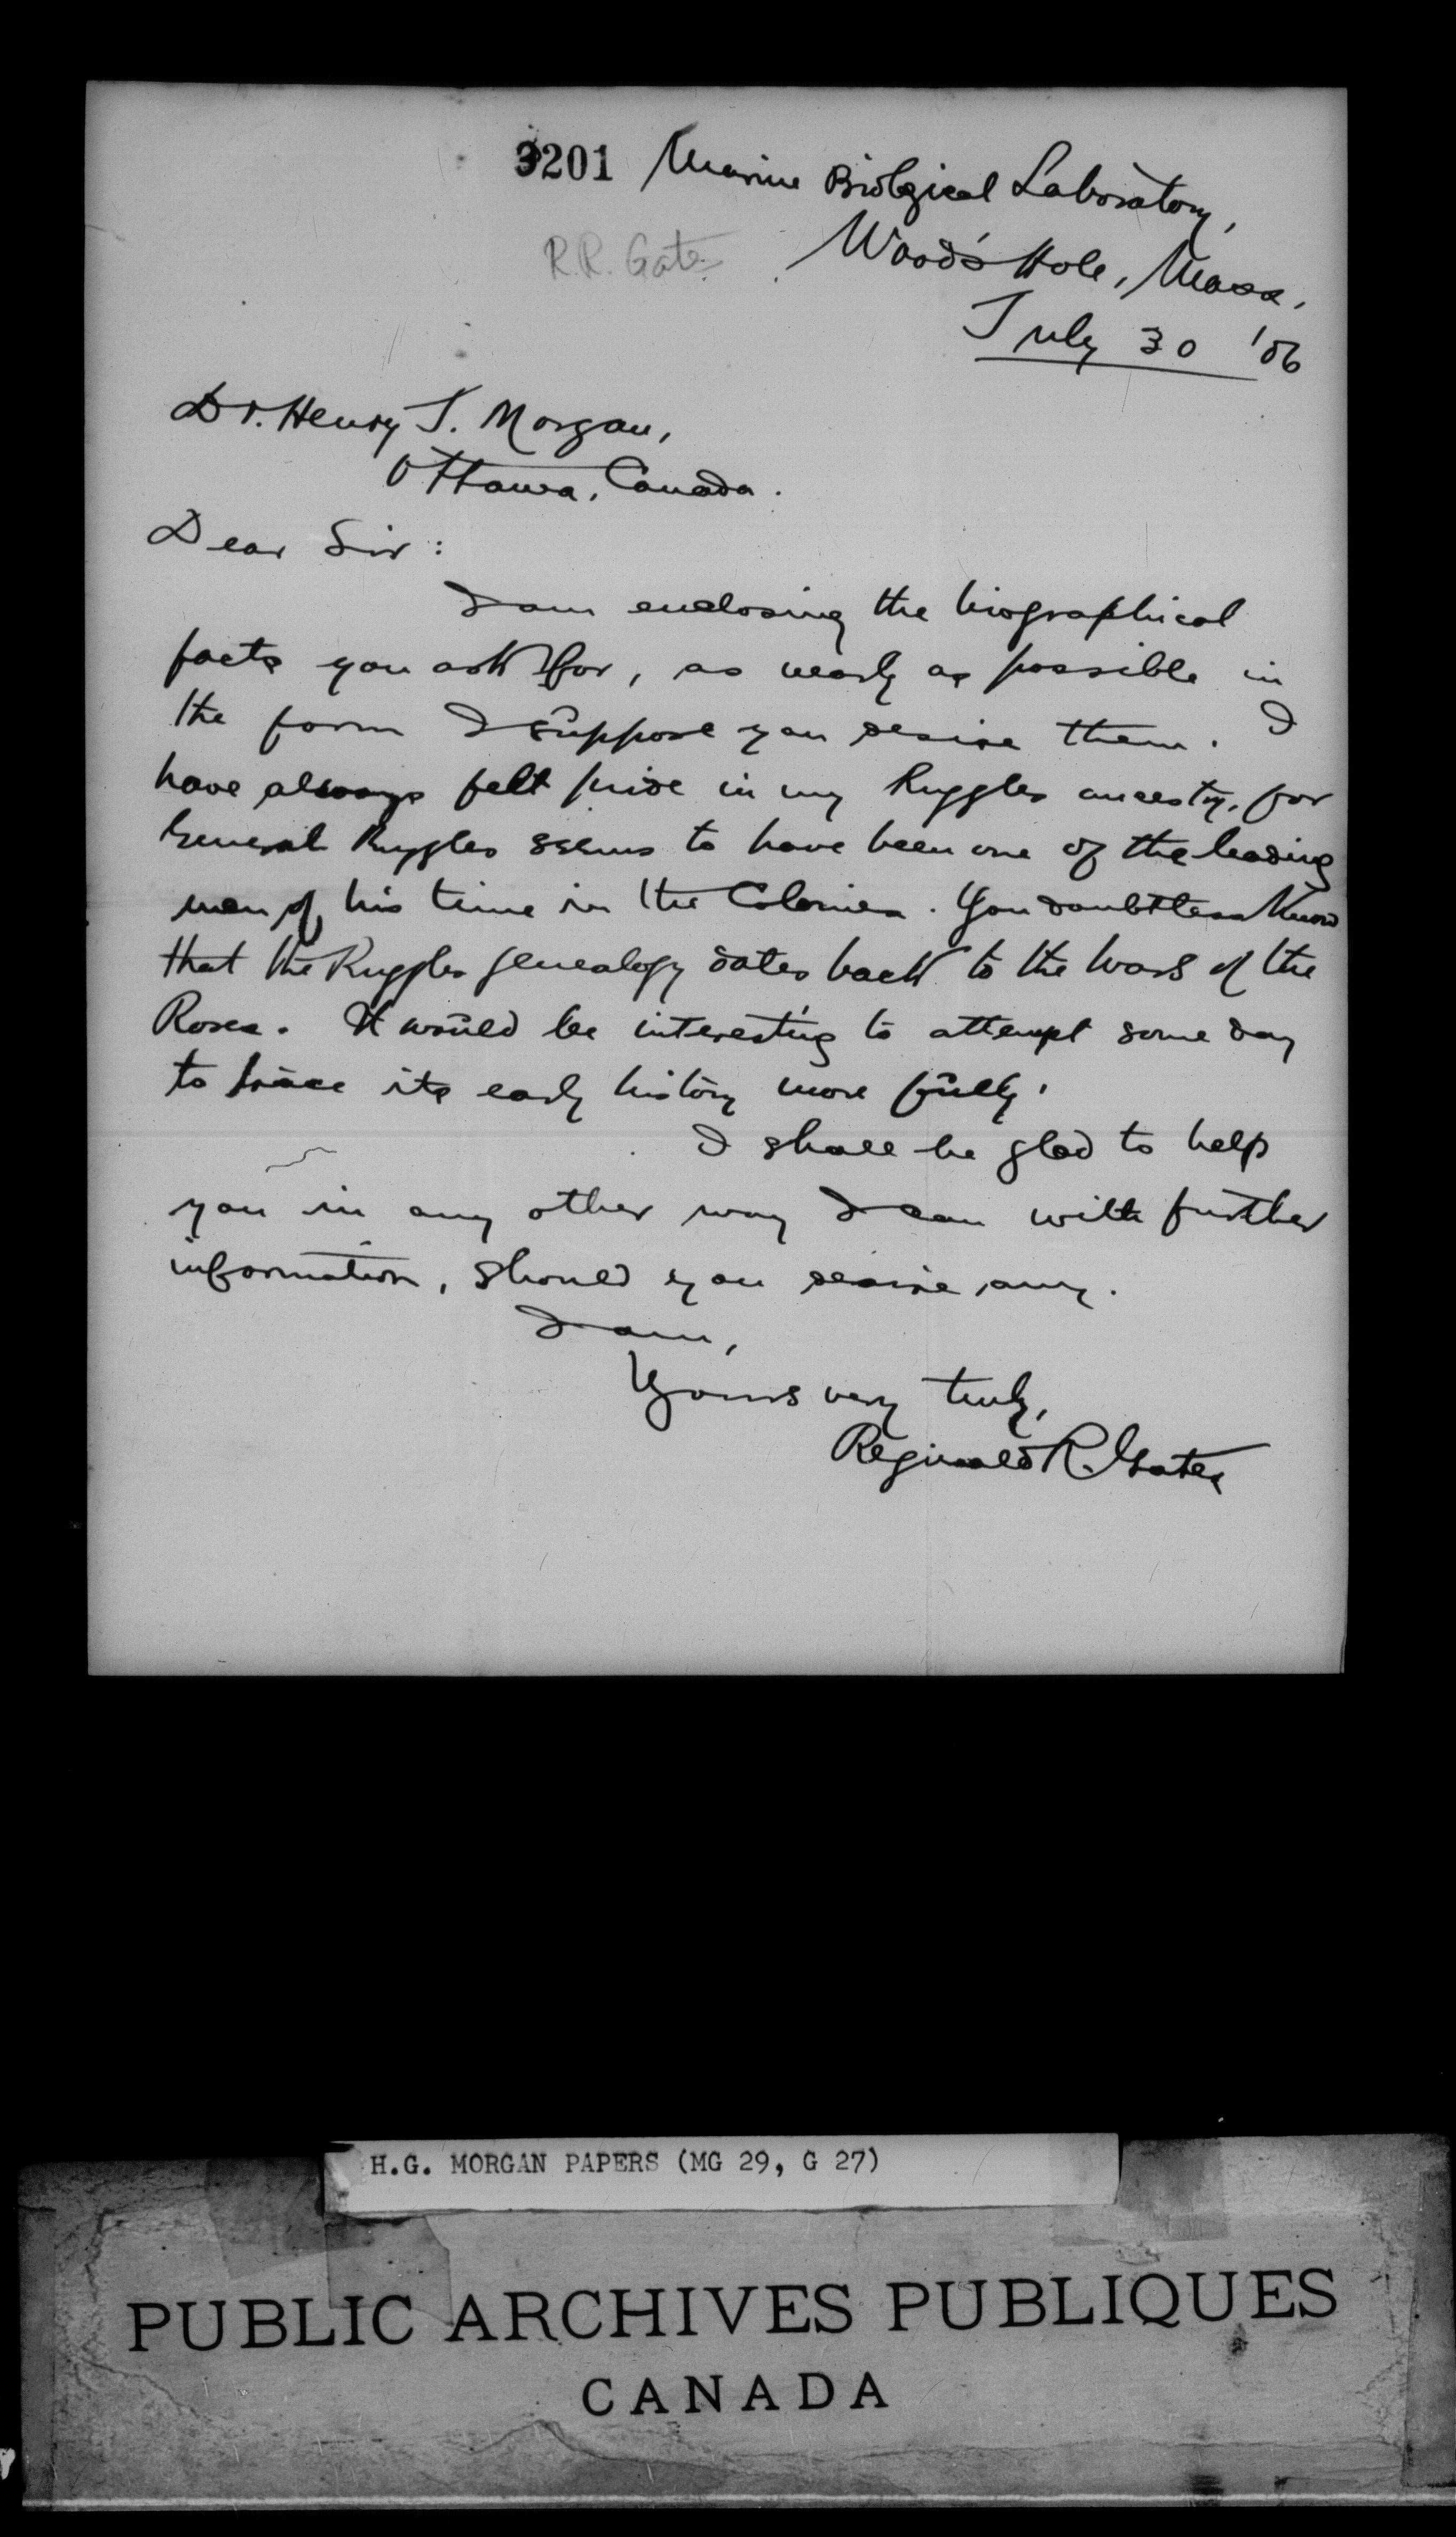 3201 Marine Biological Laboratory,
R.R. Gates
Wood's Hole, Mass,
July 30 '06
Dr. Henry J. Morgan,
Ottawa, Canada.
Dear Sir:
I am enclosing the biographical
facts you ask for, as nearly as possible in
the form I suppose you desire them. I
have always felt pride in my Ruggles ancestry, for
General Ruggles seems to have been one of the leading
men of his time in the Colonies. You doubtless know
that the Ruggles genealogy dates back to the Wars of the
Roses. It would be interesting to attempt some day
to trace its early history more fully.
I shall be glad to help
you in any other way I can with further
information, should you desire any.
I am,
Yours very truly,
Reginald R. Gates
H.G. MORGAN PAPERS (MG 29, G 27)
PUBLIC ARCHIVES PUBLIQUES
CANADA